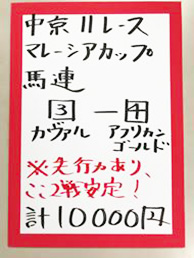 中京11レース
マレーシアカップ
馬連
3 ー 田
カヴァル アフリカンゴールド
※先行力あり、
ここ2戦安定!
計10000円